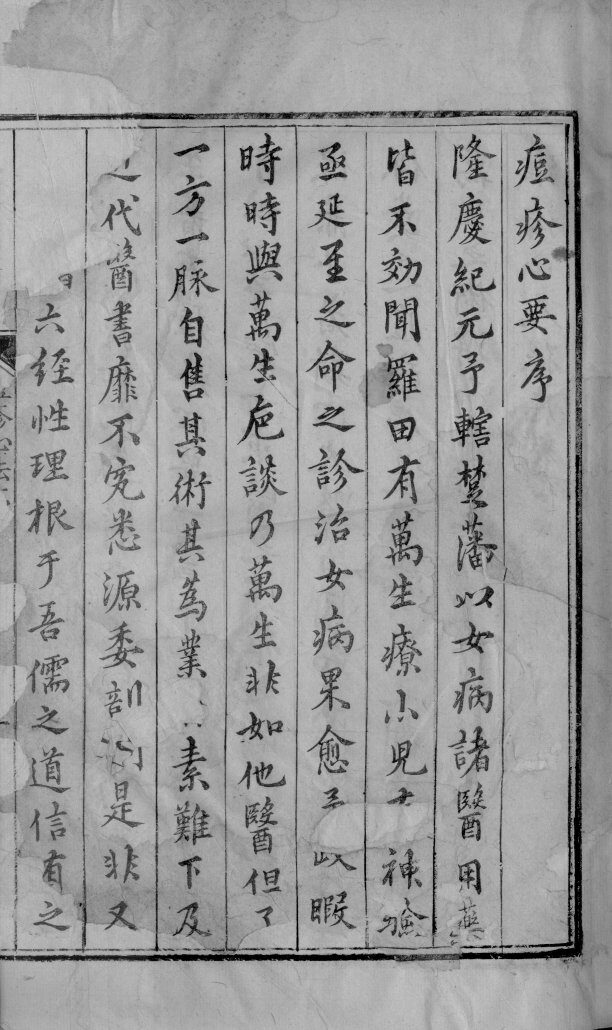 痘疹心要序
隆慶紀元予轄楚藩以女病諸醫用藥
皆不効聞羅田有萬生療小兒神驗
亟延至之命之診治女病果愈予政暇
時時與萬生巵談乃萬生非如他醫但了
一方一脉自售其術其為業素難下及
代醫書靡不究悉源委剖是非又
六經性理根于吾儒之道信有之